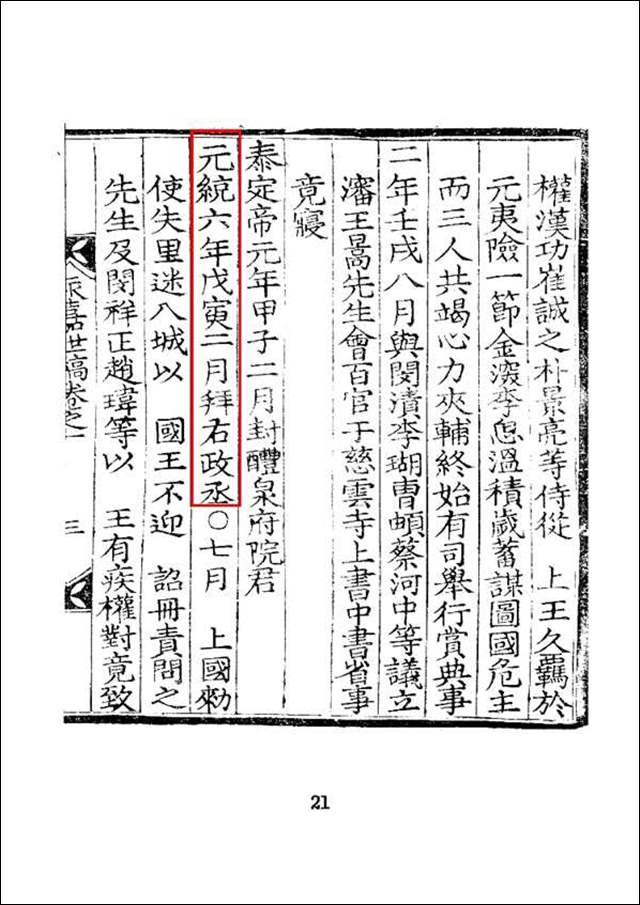 權漢功崔誠之朴景亮等侍從 上王久羈於
元夷險一節金深李思溫積歲蓄謀圖國危主
而三人共竭心力夾輔終始有司舉行賞典事
二年壬戌八月與閔漬李瑚曺頔蔡河中等議立
瀋王暠先生會百官于慈雲寺上書中書省事
竟寢
泰定帝元年甲子二月封醴泉府院君
元統六年戊寅二月拜右政丞○七月 上國勑
使失里迷八城以 國王不迎 詔冊責問之
先生及閔祥正趙瑋等以 王有疾權對竟致
永嘉世稿卷之一 三
21